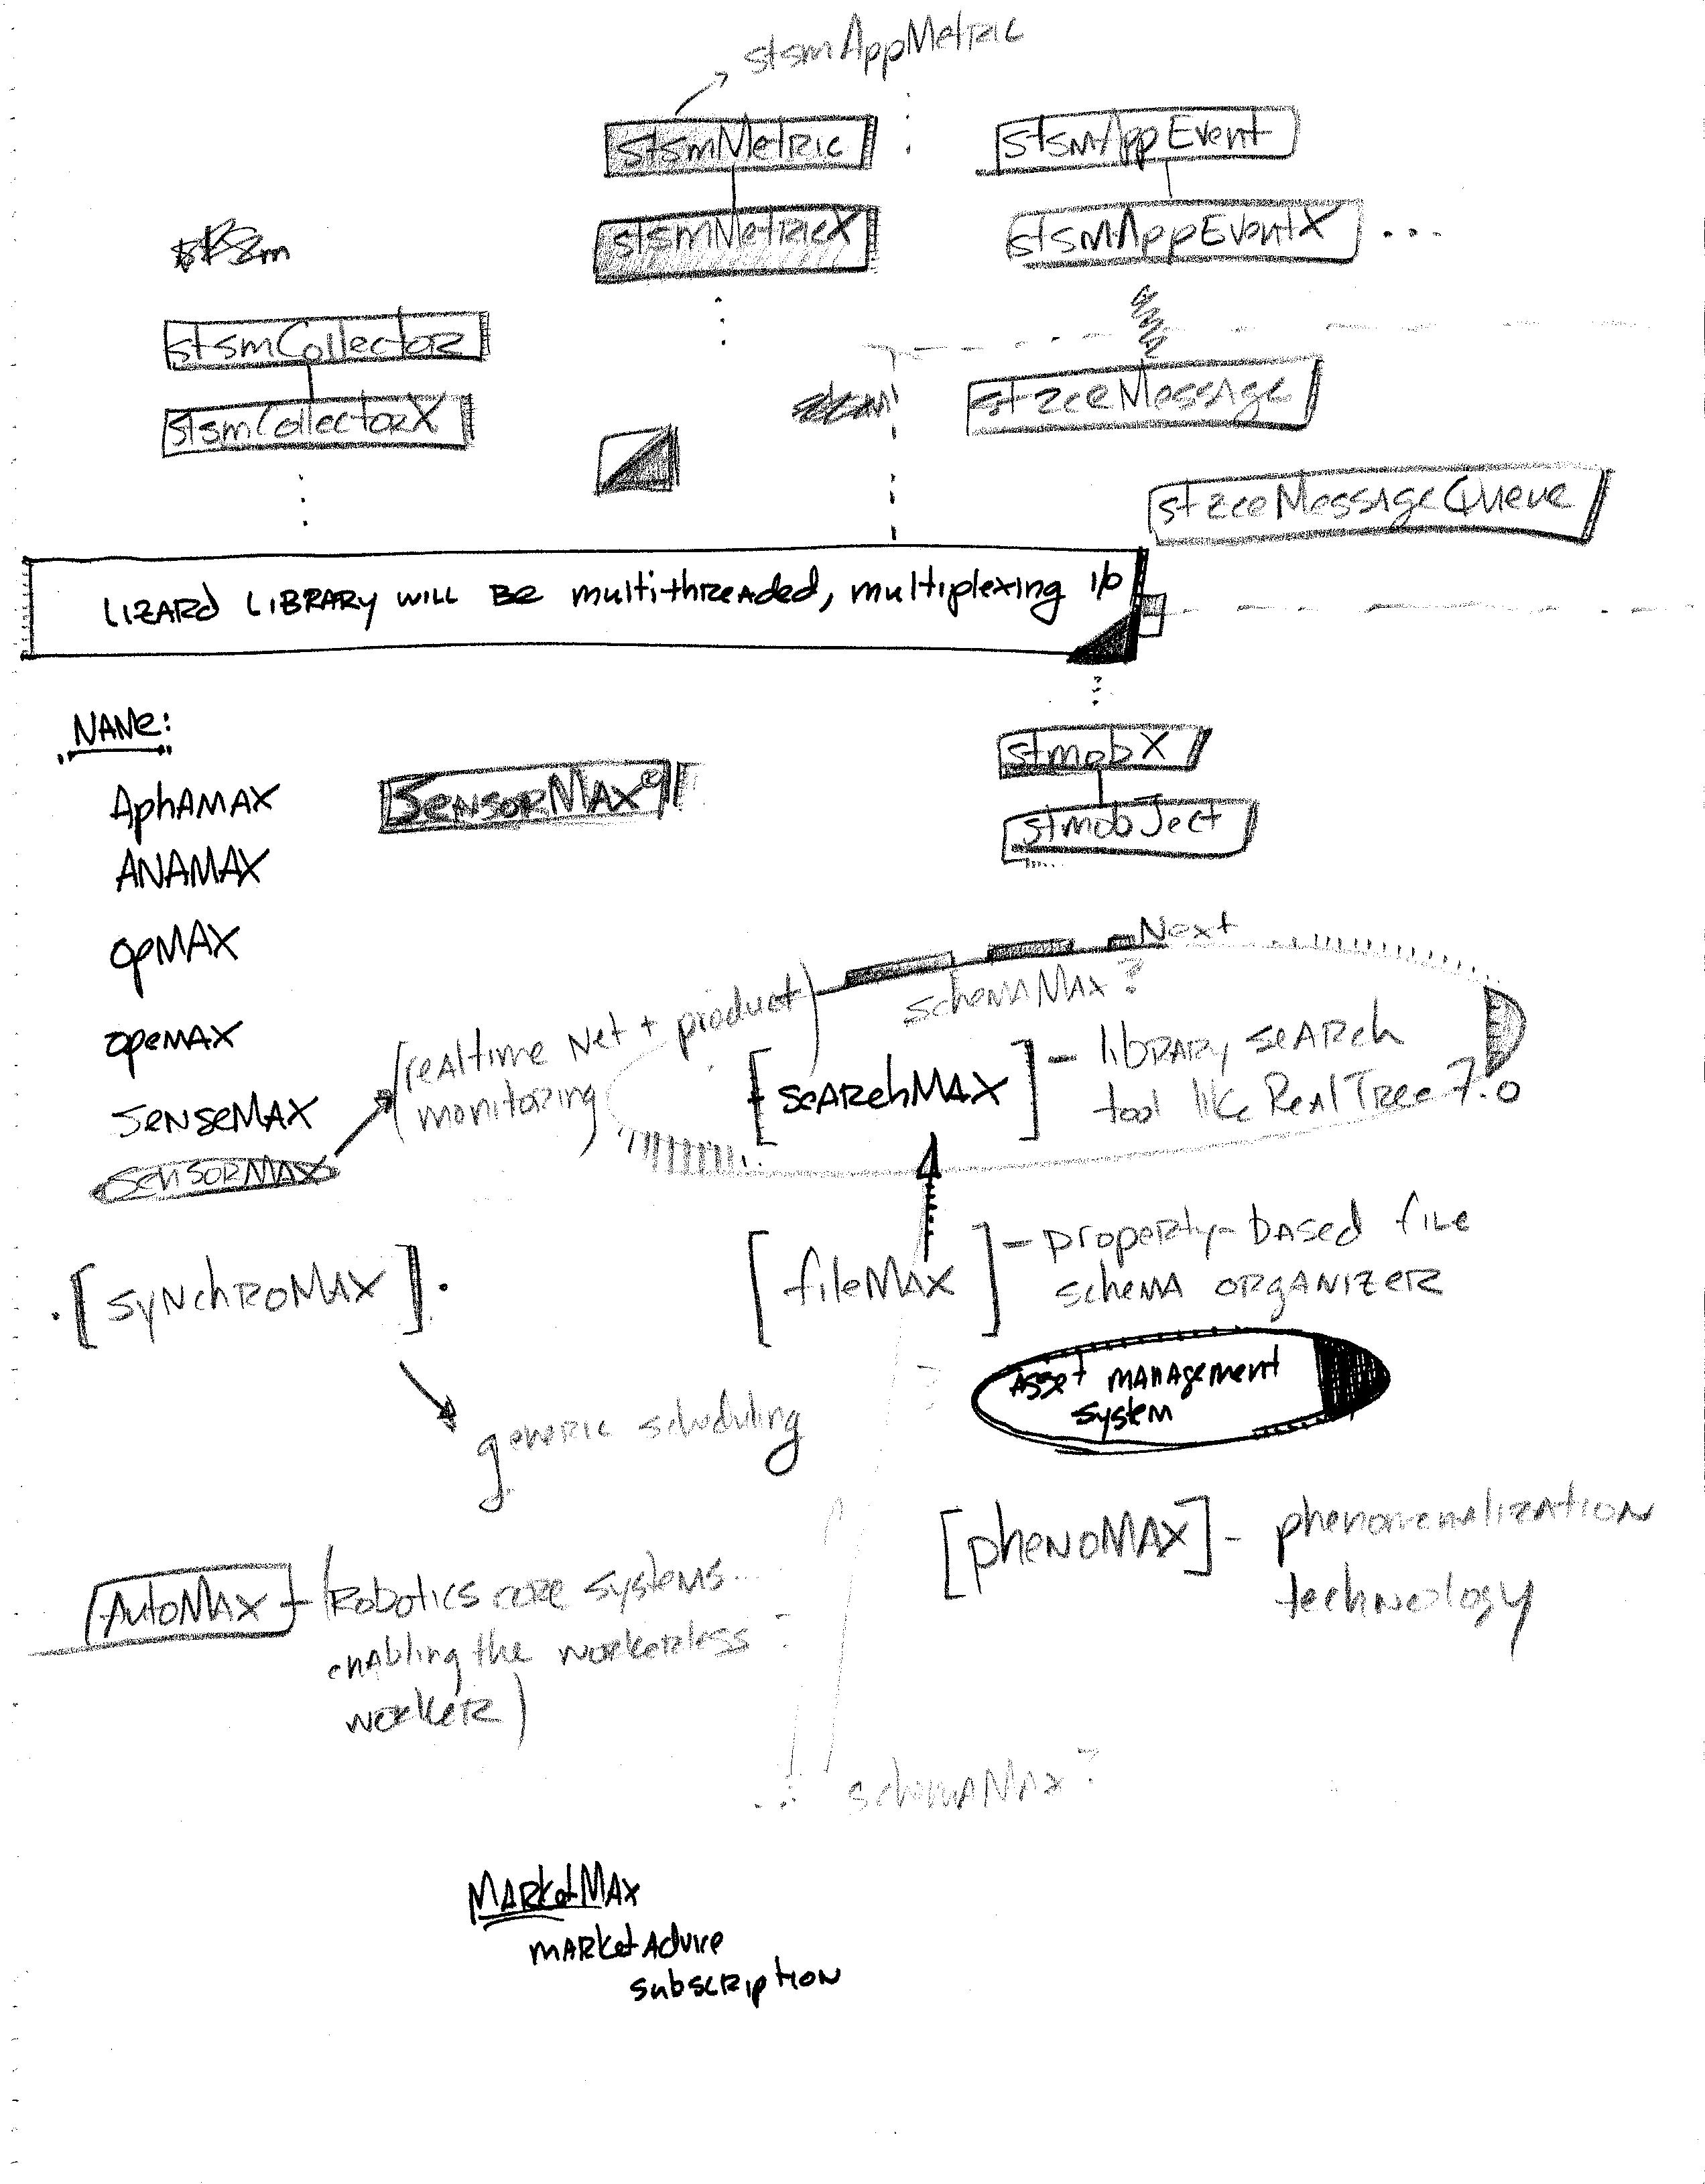 stsmAppMetric
stsmMetric
stsmAppEvent
stsmMetricX
stsmAppEventX ...
stsmCollector
stsmCollectorX
stzceMessage
stzceMessageQueue
LIZARD LIBRARY WILL BE multithreaded, multiplexing I/O
NAME:
stmobX
AphAMAX
SENSORMAX
stmobJect
ANAMAX
opMAX
Next
schemaMax?
opeMAX
(realtime Net + product
monitoring)
[searchMAX] - library search
tool like RealTree 7.0
SenseMAX
SensorMAX
[syNchroMAX]
[fileMAX] - property-based file
schema organizer
Asset management
system
generic scheduling
[phenoMAX] - phenomenalization
technology
AutoMAX - (Robotics core systems...
enabling the workerless
worker)
schemaMax?
MarketMAX
market Advice
subscription